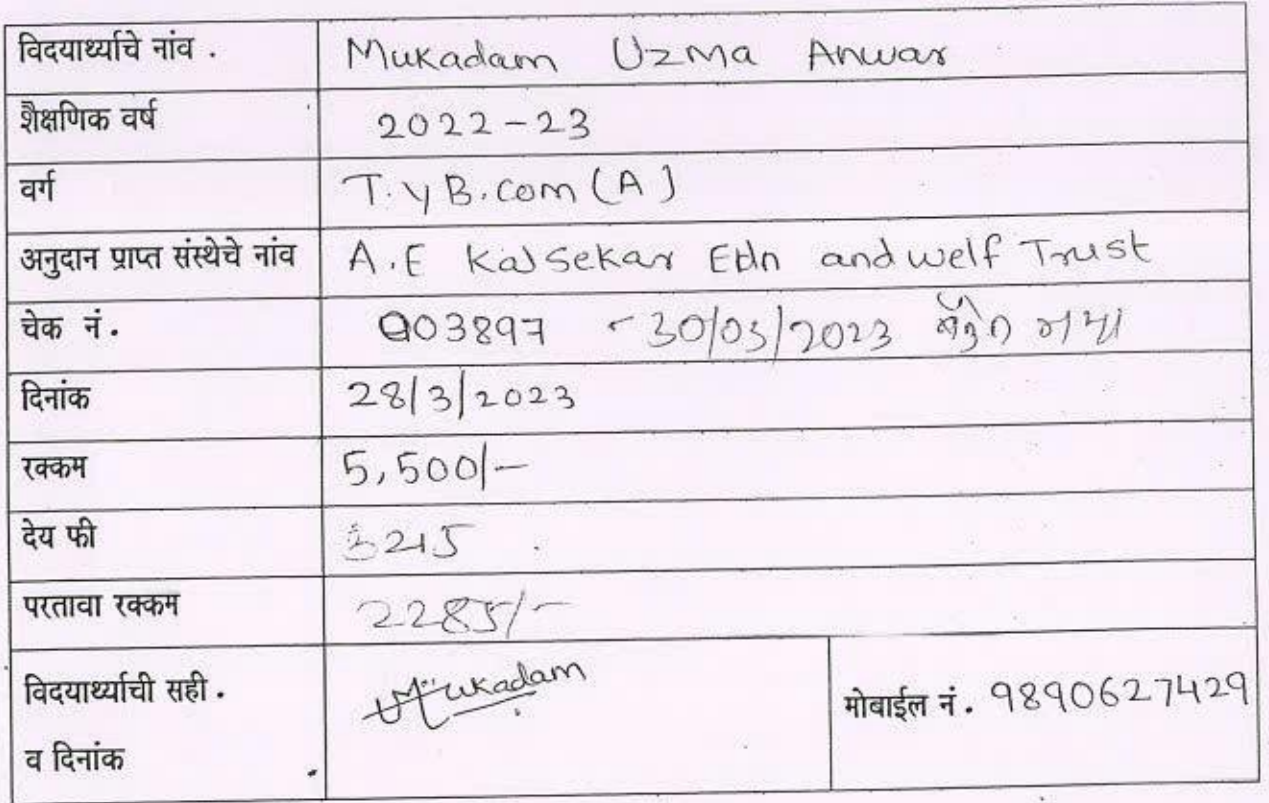 विदयार्थ्याचे नांव . Mukadam Uzma Anwar
शैक्षणिक वर्ष 2022-23
वर्ग T.y B.com (A)
अनुदान प्राप्त संस्थेचे नांव A.E Kalsekar Edn and welf Trust
चेक नं. 003897 - 30/03/2023 बँकेत जमा
दिनांक 28/3/2023
रक्कम 5,500/-
देय फी 3215
परतावा रक्कम 2285/-
विदयार्थ्याची सही . Mukadam मोबाईल नं. 9890627429
व दिनांक